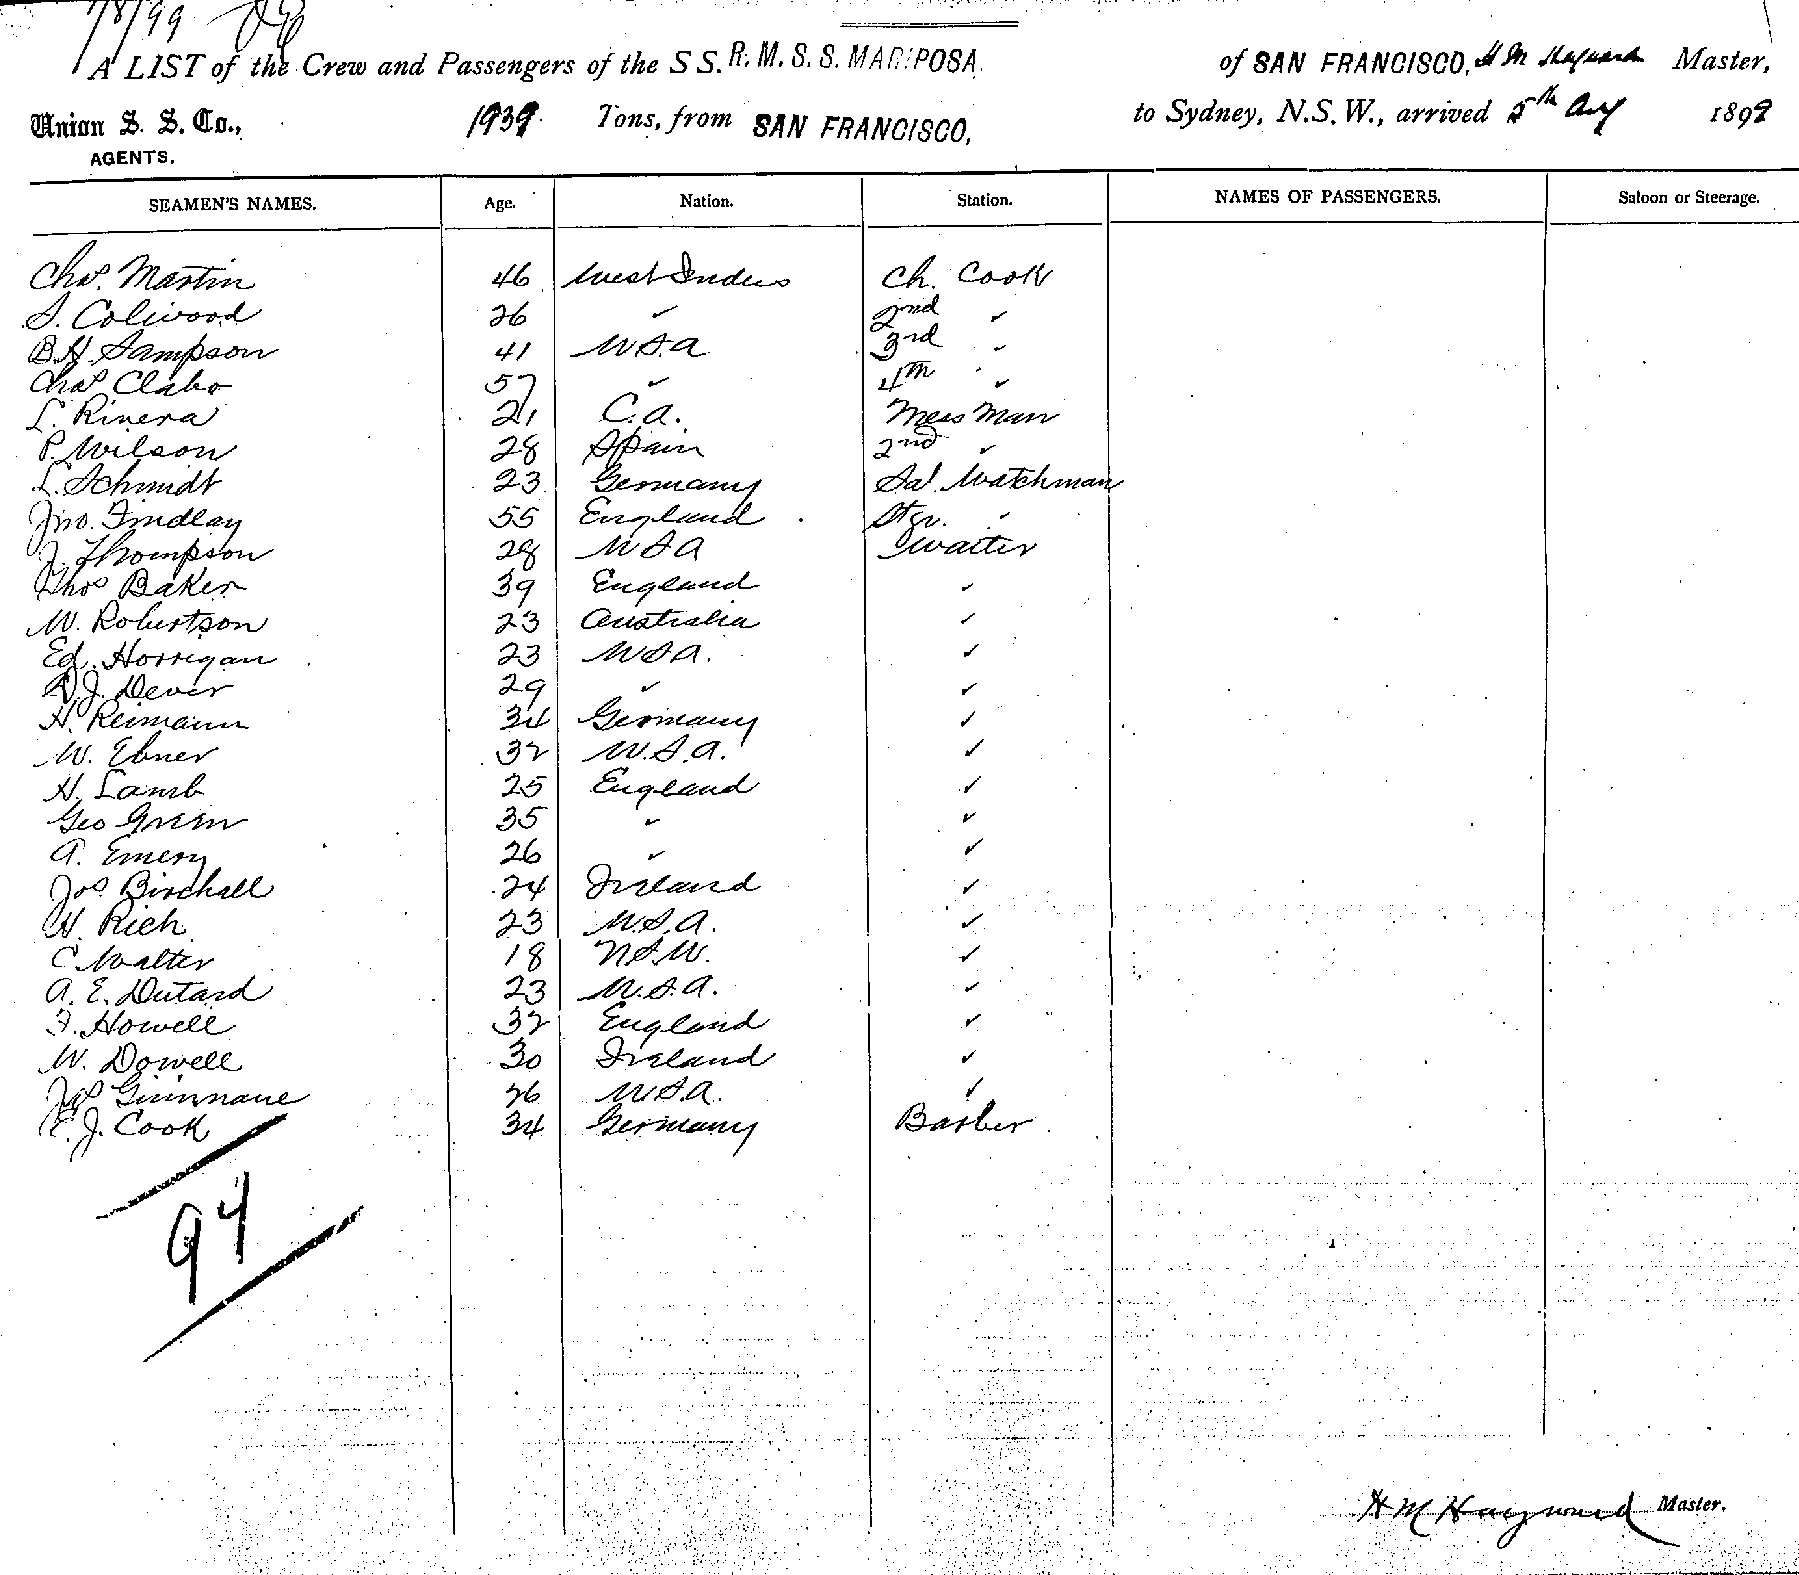 7/8/99
A LIST of the Crew and Passengers of the S S. R. M. S. S. MARIPOSA. of SAN FRANCISCO, H M Hayward Master,
Union S. S. Co., 1939 Tons, from SAN FRANCISCO, to Sydney, N.S.W., arrived 5th Aug 1899
AGENTS.
SEAMEN'S NAMES. Age. Nation. Station. NAMES OF PASSENGERS. Saloon or Steerage.
Chas. Martin 46 West Indies Ch. Cook
S. Coliwood 26 " 2nd "
B H Sampson 41 U S. A 3rd "
Chas Clabo 57 " 4th "
L. Rivera 21 C. A. Mess Man
P. Wilson 28 Spain 2nd "
L. Schmidt 23 Germany Sal. Watchman
Jno. Findlay 55 England Stge. "
J. Thompson 28 U S A Waiter
Thos Baker 39 England "
W. Robertson 23 Australia "
Ed. Horrigan 23 U S A. "
D. J. Dever 29 " "
H. Reimann 34 Germany "
W. Ebner 32 U. S. A. "
H. Lamb 25 England "
Geo Green 35 " "
A. Emery 26 " "
Jos Birchall 24 Ireland "
H. Rich 23 U. S. A. "
C Walter 18 N S. W. "
A. E. Dutard 23 U. S. A. "
F. Howell 32 England "
W. Dowell 30 Ireland "
Jas Guinnane 26 U. S. A. "
E. J. Cook 34 Germany Barber
94
H M Hayward Master.